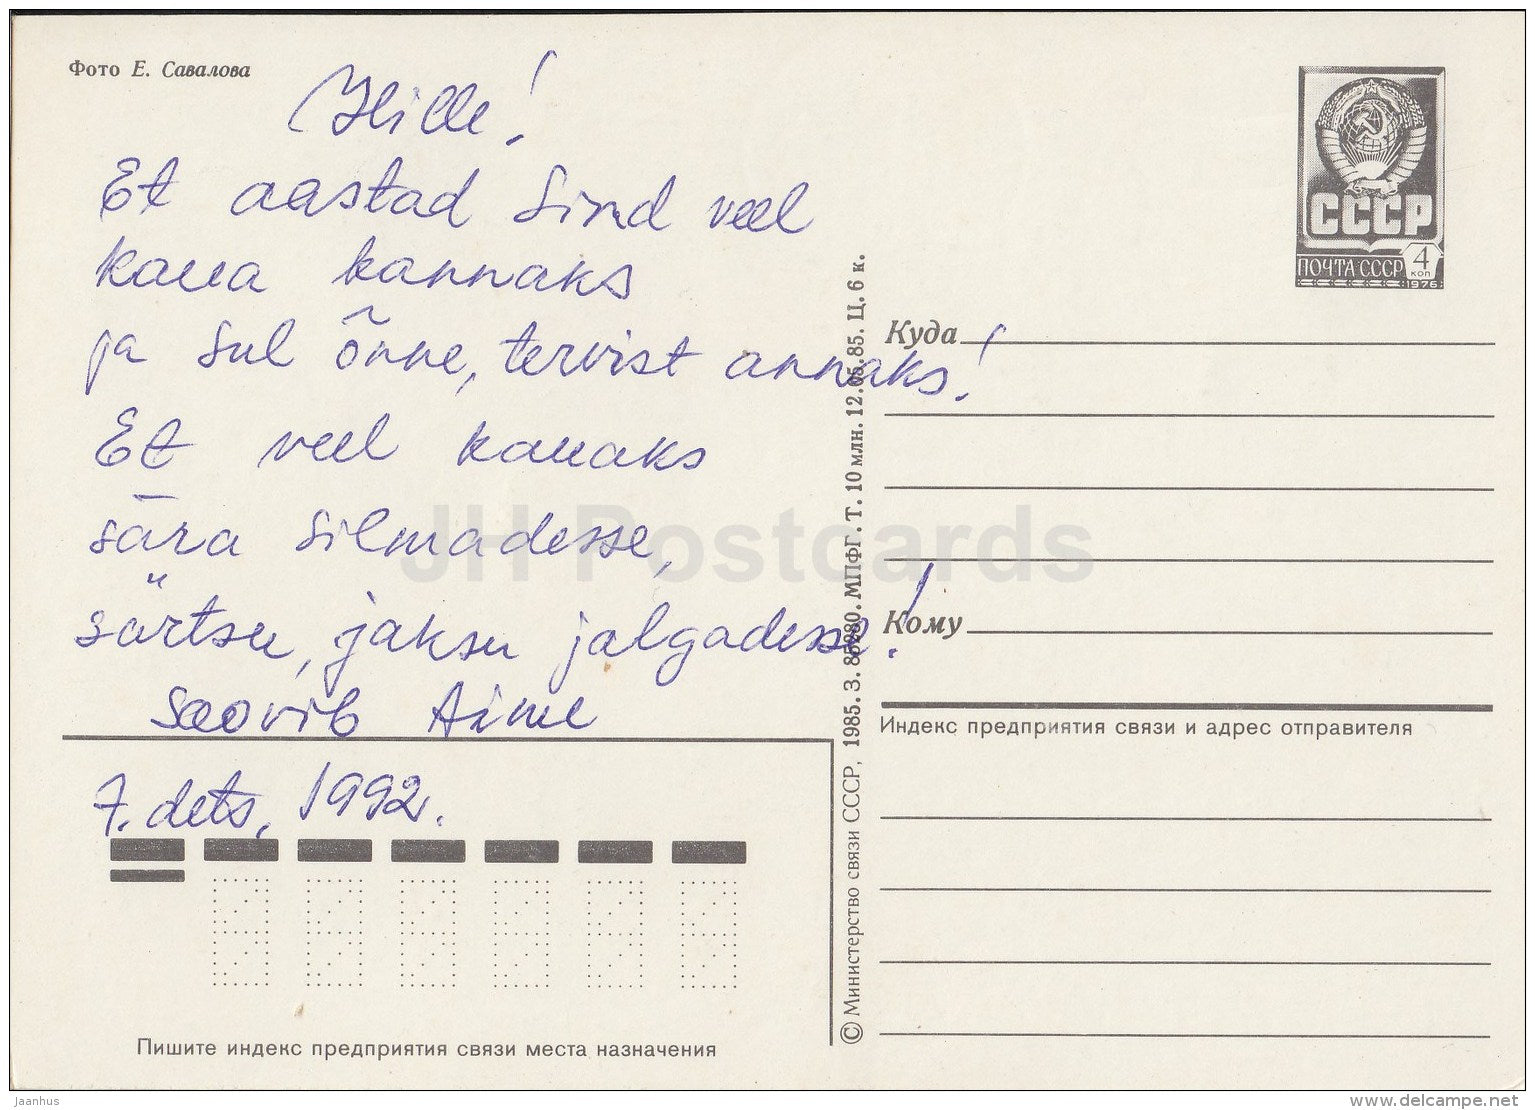 Фото Е. Савалова
Hille!
Et aastad Sind veel
kaua kannaks
ja Sul õnne, tervist annaks!
Et veel kauaks
sära silmadesse,
särtsu, jaksu jalgadesse!
Soovib Aime
7. dets. 1992.
СССР
ПОЧТА СССР 4 коп
1976
Куда
Кому
Индекс предприятия связи и адрес отправителя
© Министерство связи СССР, 1985. З. 85280. МПФГ. Т. 10 млн. 12.05.85. Ц. 6 к.
Пишите индекс предприятия связи места назначения
JH Postcards
jaanhus
delcampe.net